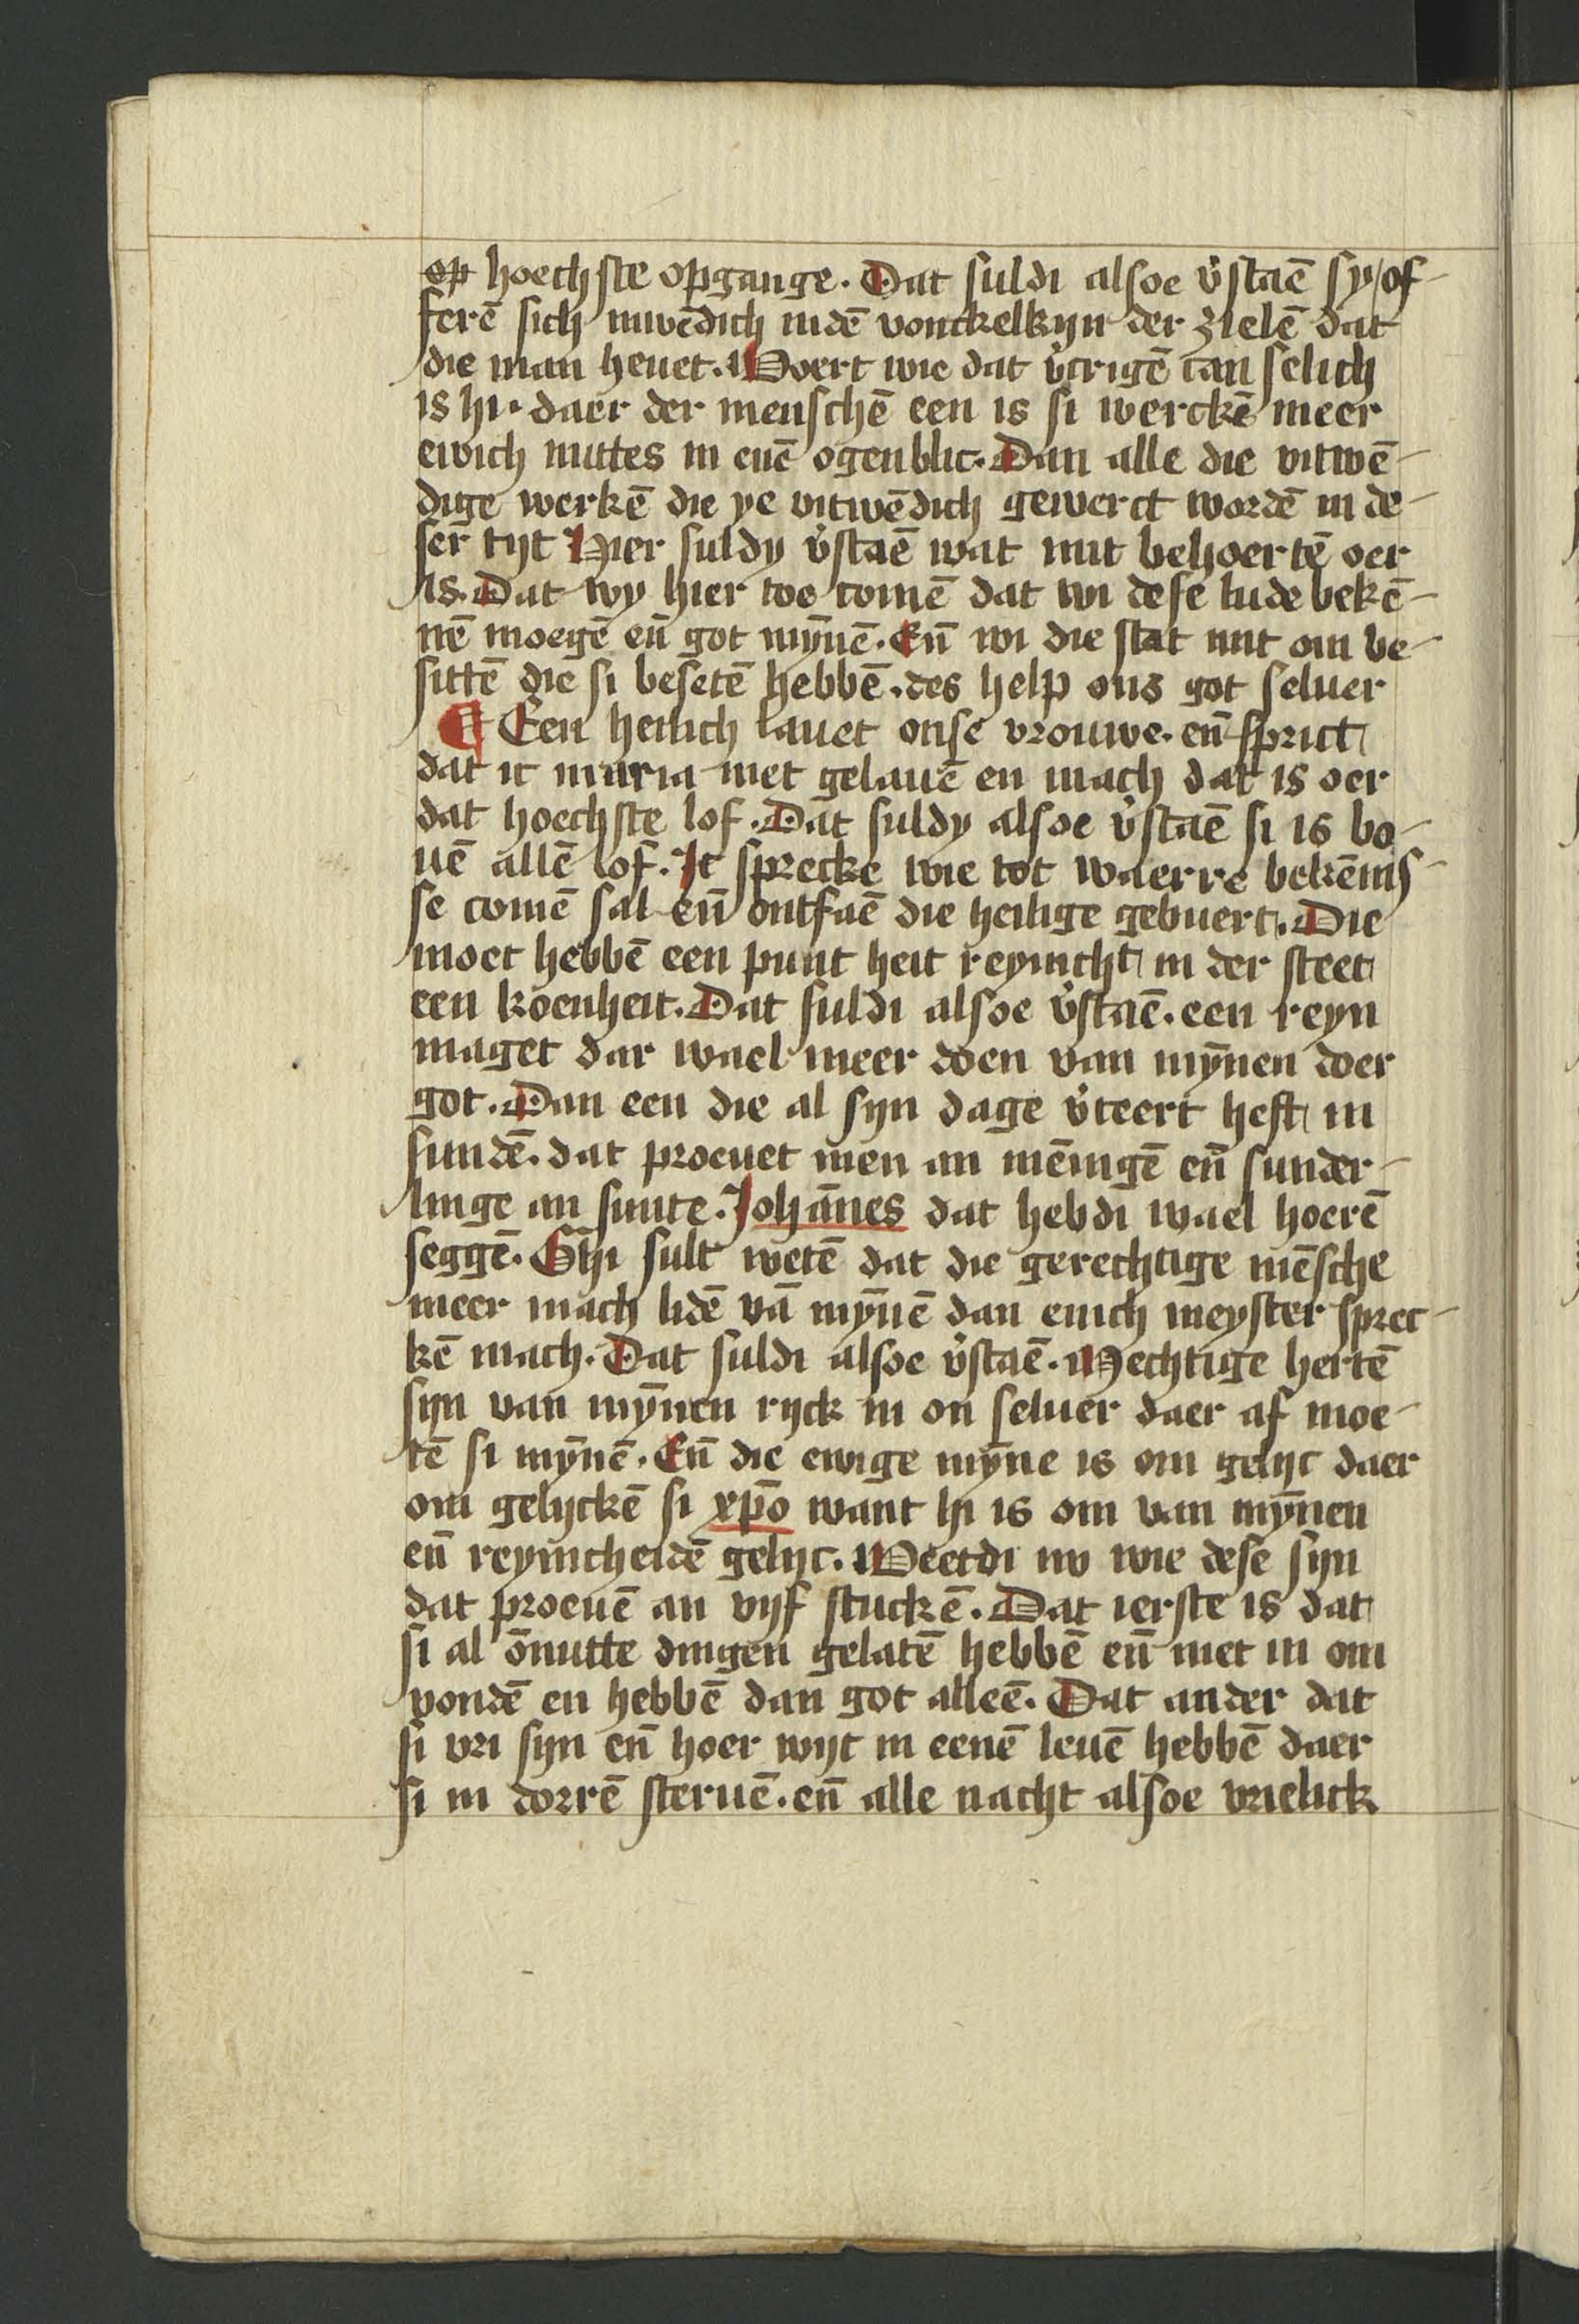 op hoechste opgange. Dat suldi alsoe v̓staē sy of-
ferē sich inwēdich indē vonckelkijn der zielē dat
die man heuet. Woert wie dat v̓crigē can selich
is hi. daer der menschē een is si werckē meer
ewich nuttes in enē ogenblic. Dan alle die vitwē-
dige werkē die ye vitwēdich gewerct wordē in de-
ser tijt Hier suldy v̓staē wat nut behoertē oer
is. Dat wy hier toe comē dat wi dese lude bekē-
nē moegē eñ got mȳnē. Eñ wi die stat mit om be-
sittē die si besetē hebbē. des help ons got seluer
¶ Een heilich lauet onse vrouwe. eñ sprict
dat ic maria niet gelauē en mach dat is oer
dat hoechste lof. Dat suldy alsoe v̓staē si is bo-
uē allē lof. Ic sprecke wie tot waerre bekēnis-
se comē sal eñ ontfaē die heilige gebuert. Die
moet hebbē een punt heit reynicht in der steet
een koenheit. Dat suldi alsoe v̓staē. een reyn
maget dar wael meer doen van mȳnen doer
got. Dan een die al sijn dage v̓teert heft in
sundē. dat proeuet men an mēnigē eñ sunder-
linge an sunte. Johānes dat hebdi wael hoerē
seggē. Ghi sult wetē dat die gerechtige mēsche
meer mach lidē vā mȳnē dan enich meyster sprec-
kē mach. Dat suldi alsoe v̓staē. Mechtige hertē
sijn van mȳnen rijck in on seluer daer af moe-
tē si mȳnē. Eñ die ewige mȳne is om gelijc daer
om gelijckē si xp̄o want hi is om van mȳnen
eñ reynicheidē gelijc. Weetdi nv wie dese sijn
dat proeuē an vijf stuckē. Dat ierste is dat
si al ōnutte dingen gelatē hebbē eñ niet in om
vondē en hebbē dan got alleē. Dat ander dat
si vri sijn eñ hoer wijt in eenē leuē hebbē daer
si in dorrē steruē. eñ alle nacht alsoe vrielick